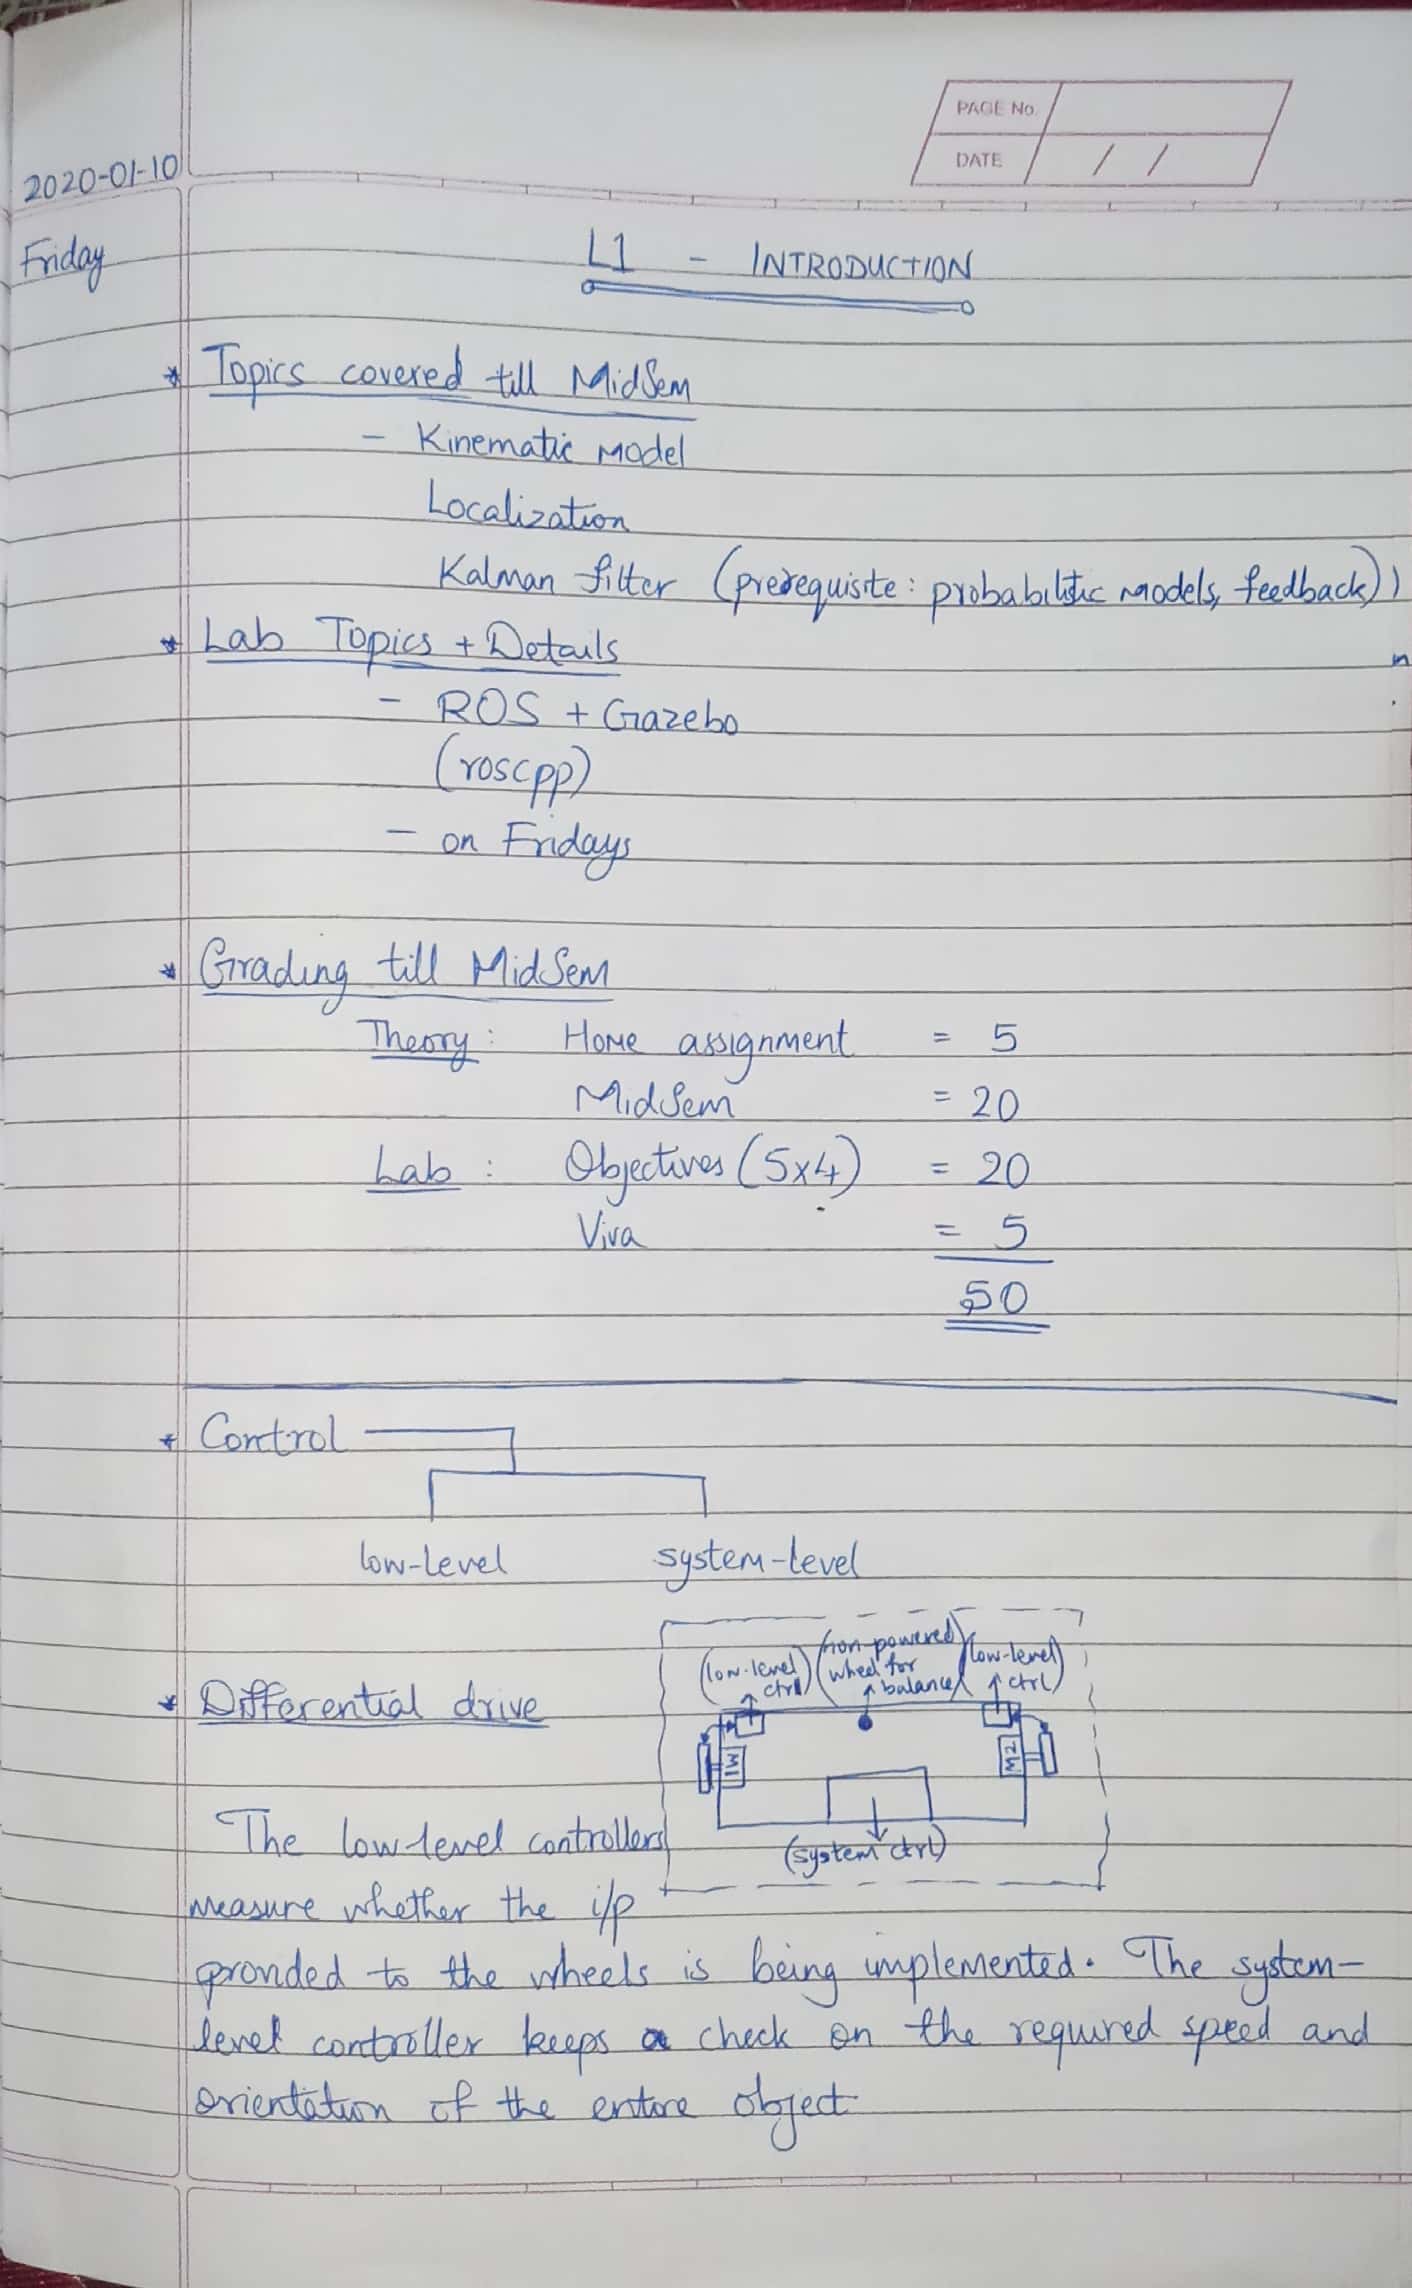 PAGE No.
DATE / /
2020-01-10
Friday
L1 - INTRODUCTION
* Topics covered till MidSem
- Kinematic Model
Localization
Kalman filter (prerequisite: probabilistic models, feedback))
* Lab Topics + Details
- ROS + Gazebo
(roscpp)
- on Fridays
* Grading till MidSem
Theory: Home assignment = 5
MidSem = 20
Lab : Objectives (5x4) = 20
Viva = 5
50
* Control
low-level system-level
* Differential drive
(low-level ctrl) (non-powered wheel for balance) (low-level ctrl)
M1 M2
(system ctrl)
The low-level controllers
measure whether the i/p
provided to the wheels is being implemented. The system-
level controller keeps a check on the required speed and
orientation of the entire object